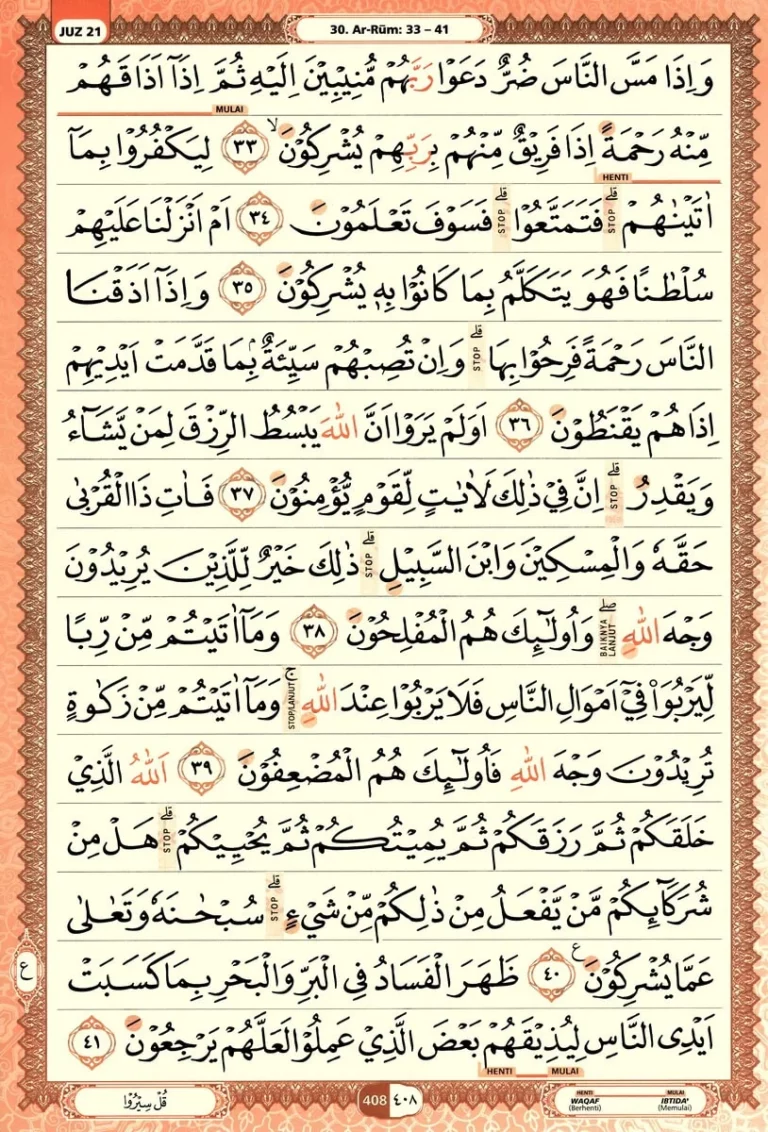 JUZ 21
30. Ar-Rūm: 33 – 41
وَاِذَا مَسَّ النَّاسَ ضُرٌّ دَعَوْا رَبَّهُمْ مُّنِيْبِيْنَ اِلَيْهِ ثُمَّ اِذَآ اَذَاقَهُمْ
MULAI
مِّنْهُ رَحْمَةً اِذَا فَرِيْقٌ مِّنْهُمْ بِرَبِّهِمْ يُشْرِكُوْنَۙ ٣٣ لِيَكْفُرُوْا بِمَآ
HENTI
اٰتَيْنٰهُمْۗ STOP فَتَمَتَّعُوْاۗ STOP فَسَوْفَ تَعْلَمُوْنَ ٣٤ اَمْ اَنْزَلْنَا عَلَيْهِمْ
سُلْطٰنًا فَهُوَ يَتَكَلَّمُ بِمَا كَانُوْا بِهٖ يُشْرِكُوْنَ ٣٥ وَاِذَآ اَذَقْنَا
النَّاسَ رَحْمَةً فَرِحُوْا بِهَاۗ STOP وَاِنْ تُصِبْهُمْ سَيِّئَةٌۢ بِمَا قَدَّمَتْ اَيْدِيْهِمْ
اِذَا هُمْ يَقْنَطُوْنَ ٣٦ اَوَلَمْ يَرَوْا اَنَّ اللّٰهَ يَبْسُطُ الرِّزْقَ لِمَنْ يَّشَاۤءُ
وَيَقْدِرُۗ STOP اِنَّ فِيْ ذٰلِكَ لَاٰيٰتٍ لِّقَوْمٍ يُّؤْمِنُوْنَ ٣٧ فَاٰتِ ذَا الْقُرْبٰى
حَقَّهٗ وَالْمِسْكِيْنَ وَابْنَ السَّبِيْلِۗ STOP ذٰلِكَ خَيْرٌ لِّلَّذِيْنَ يُرِيْدُوْنَ
وَجْهَ اللّٰهِۖ BAIKNYA LANJUT وَاُولٰۤىِٕكَ هُمُ الْمُفْلِحُوْنَ ٣٨ وَمَآ اٰتَيْتُمْ مِّنْ رِّبًا
لِّيَرْبُوَا۠ فِيْٓ اَمْوَالِ النَّاسِ فَلَا يَرْبُوْا عِنْدَ اللّٰهِۚ STOP/LANJUT وَمَآ اٰتَيْتُمْ مِّنْ زَكٰوةٍ
تُرِيْدُوْنَ وَجْهَ اللّٰهِ فَاُولٰۤىِٕكَ هُمُ الْمُضْعِفُوْنَ ٣٩ اَللّٰهُ الَّذِيْ
خَلَقَكُمْ ثُمَّ رَزَقَكُمْ ثُمَّ يُمِيْتُكُمْ ثُمَّ يُحْيِيْكُمْۗ STOP هَلْ مِنْ
شُرَكَاۤىِٕكُمْ مَّنْ يَّفْعَلُ مِنْ ذٰلِكُمْ مِّنْ شَيْءٍۗ STOP سُبْحٰنَهٗ وَتَعٰلٰى
عَمَّا يُشْرِكُوْنَ ࣖ ٤٠ ظَهَرَ الْفَسَادُ فِى الْبَرِّ وَالْبَحْرِ بِمَا كَسَبَتْ
ع
اَيْدِى النَّاسِ لِيُذِيْقَهُمْ بَعْضَ الَّذِيْ عَمِلُوْا لَعَلَّهُمْ يَرْجِعُوْنَ ٤١
HENTI MULAI
قُلْ سِيْرُوْا
408 ٤٠٨
HENTI MULAI
WAQAF IBTIDA'
(Berhenti) (Memulai)